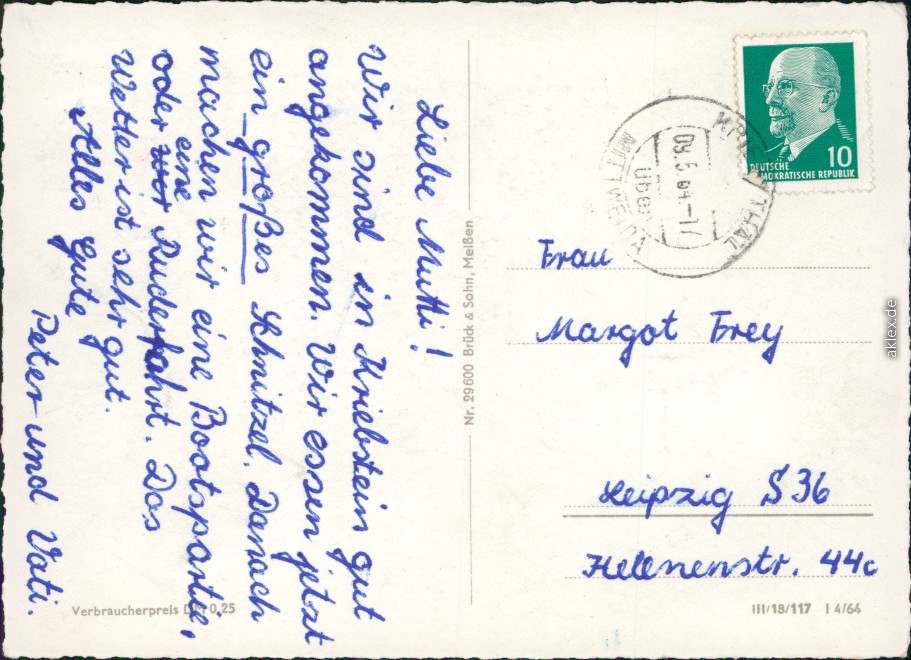 Liebe Mutti!
Wir sind in Kriebstein gut
angekommen. Wir essen jetzt
ein großes Schnitzel. Danach
machen wir eine Bootspartie,
oder wor eine Ruderfahrt. Das
Wetter ist sehr gut.
Alles Gute
Peter und Vati.
Verbraucherpreis DM 0,25
Nr. 29600 Brück & Sohn, Meißen
DEUTSCHE
DEMOKRATISCHE REPUBLIK
10
über
MITTWEIDA
Frau
Margot Frey
Leipzig S 36
Helenenstr. 44c
III/18/117 I 4/64
aklex.de